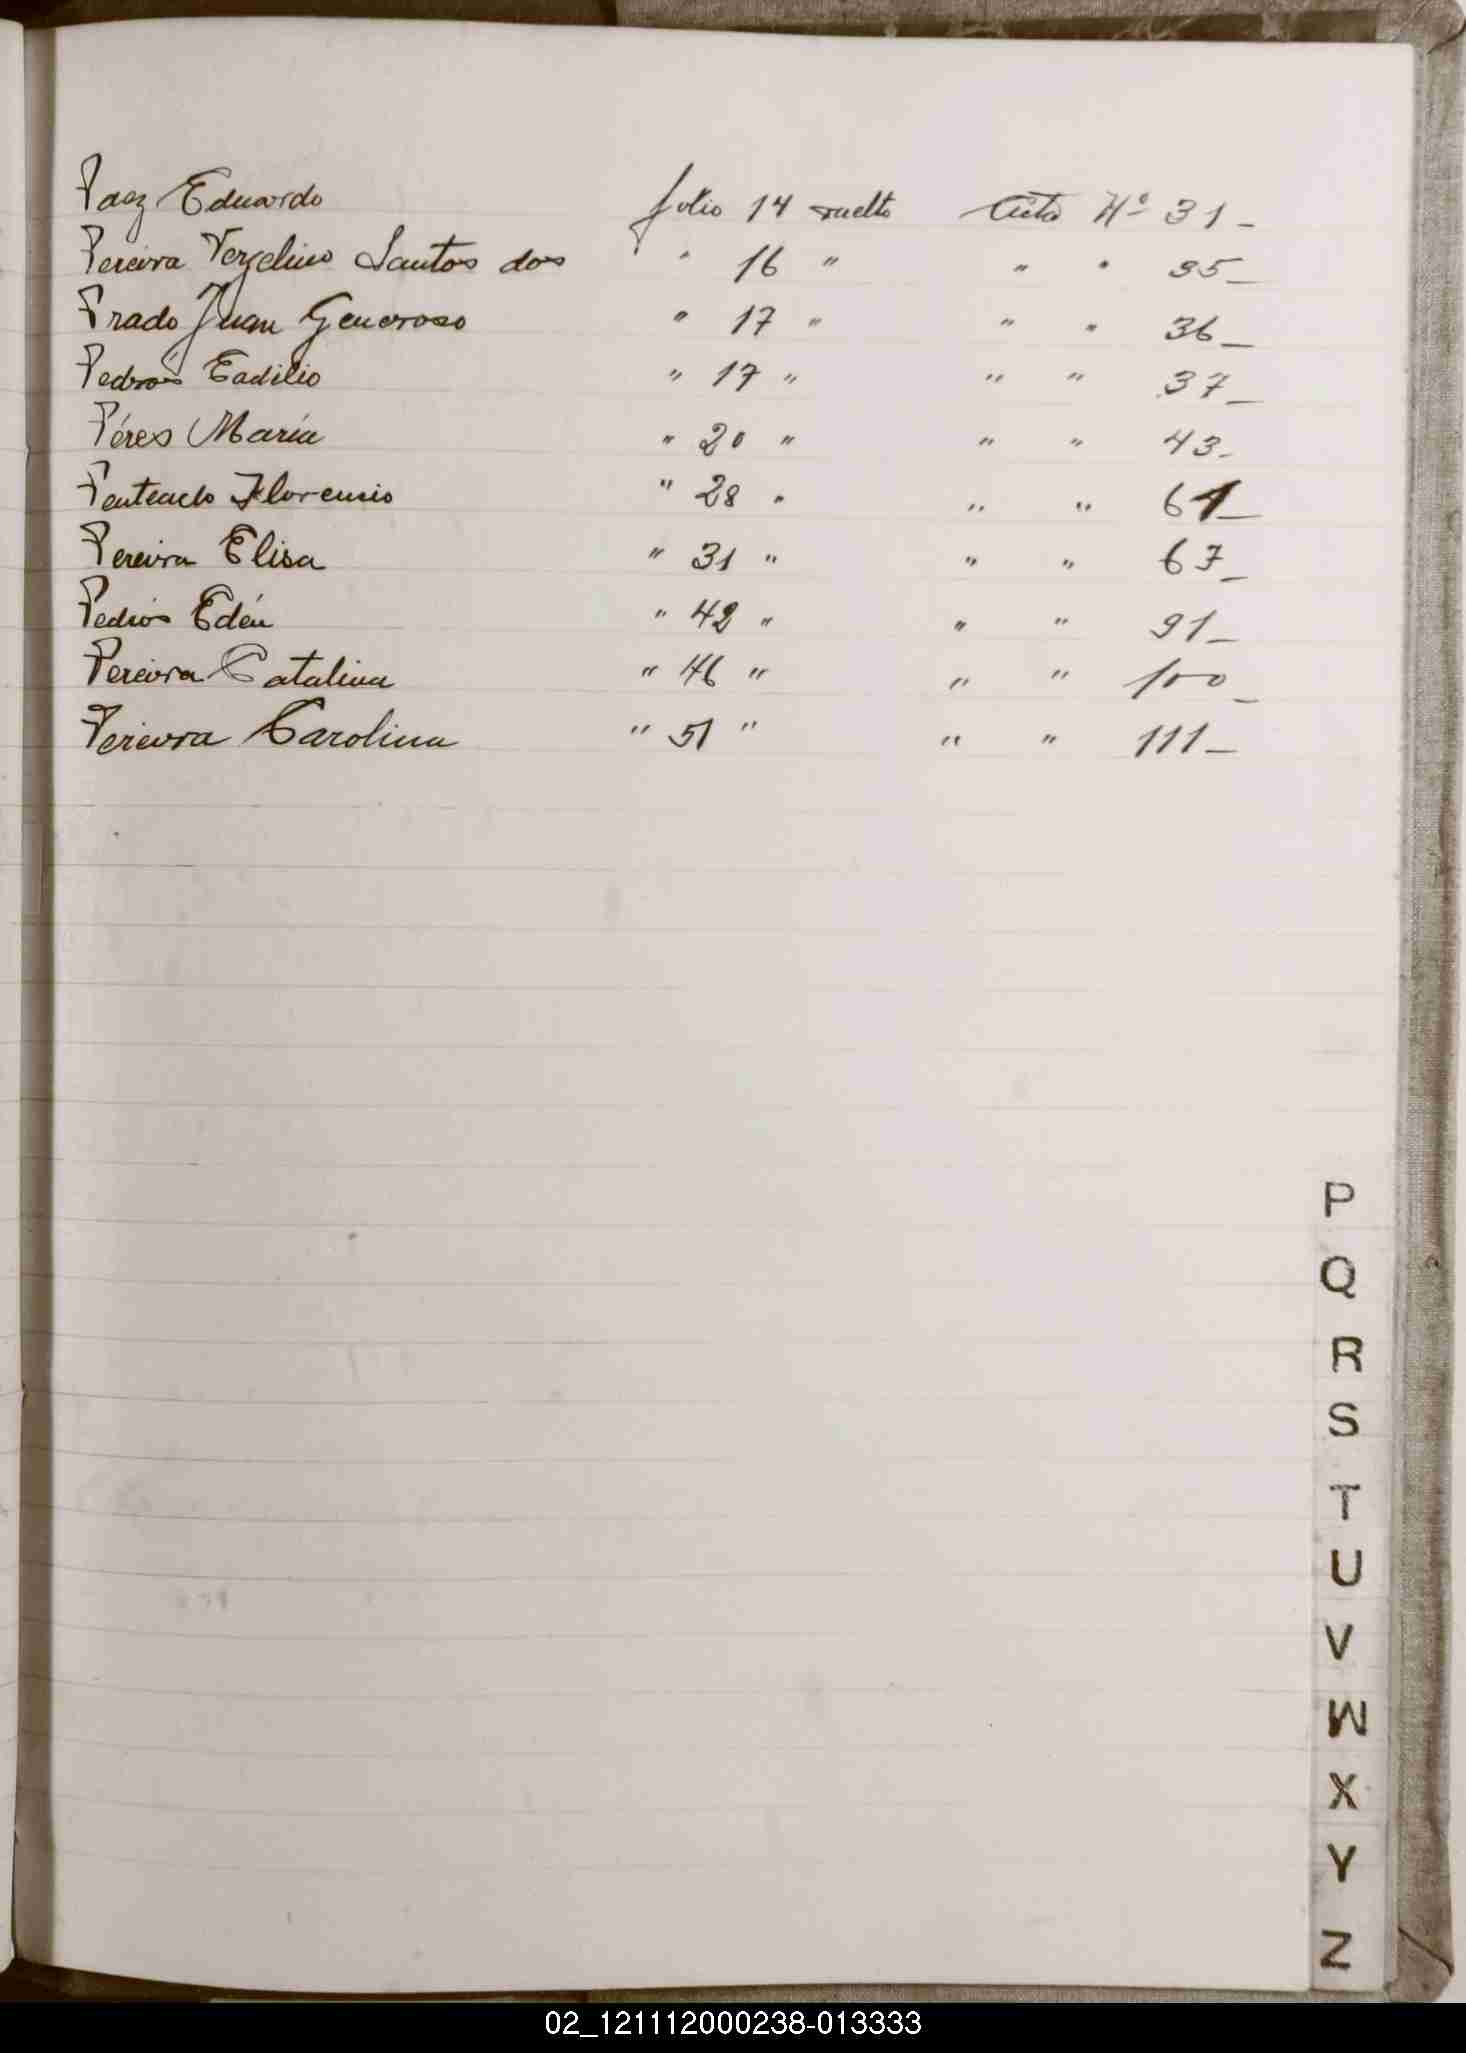 Paez Eduardo folio 14 vuelto Acta Nº 31_
Pereira Vergelino Santos dos " 16 " " " 35_
Prado Juan Generoso " 17 " " " 36_
Pedros Eadilio " 17 " " " 37_
Péres María " 20 " " " 43_
Penteado Florencio " 28 " " " 61_
Pereira Elisa " 31 " " " 67_
Pedros Edén " 42 " " " 91_
Pereira Catalina " 46 " " " 100_
Pereira Carolina " 51 " " " 111_
P
Q
R
S
T
U
V
W
X
Y
Z
02_121112000238-013333